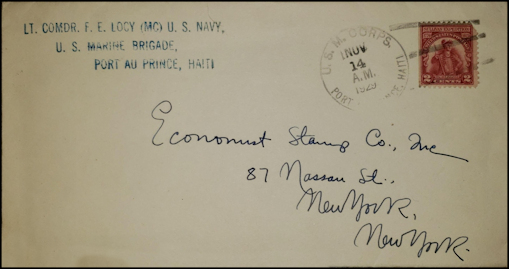 LT. COMDR. F. E. LOCY (MC) U. S. NAVY,
U. S. MARINE BRIGADE,
PORT AU PRINCE, HAITI
U. S. M. CORPS.
NOV
14
A.M.
1929
PORT HAITI
2 CENTS 2
Economist Stamp Co., Inc
87 Nassau St.,
New York,
New York.